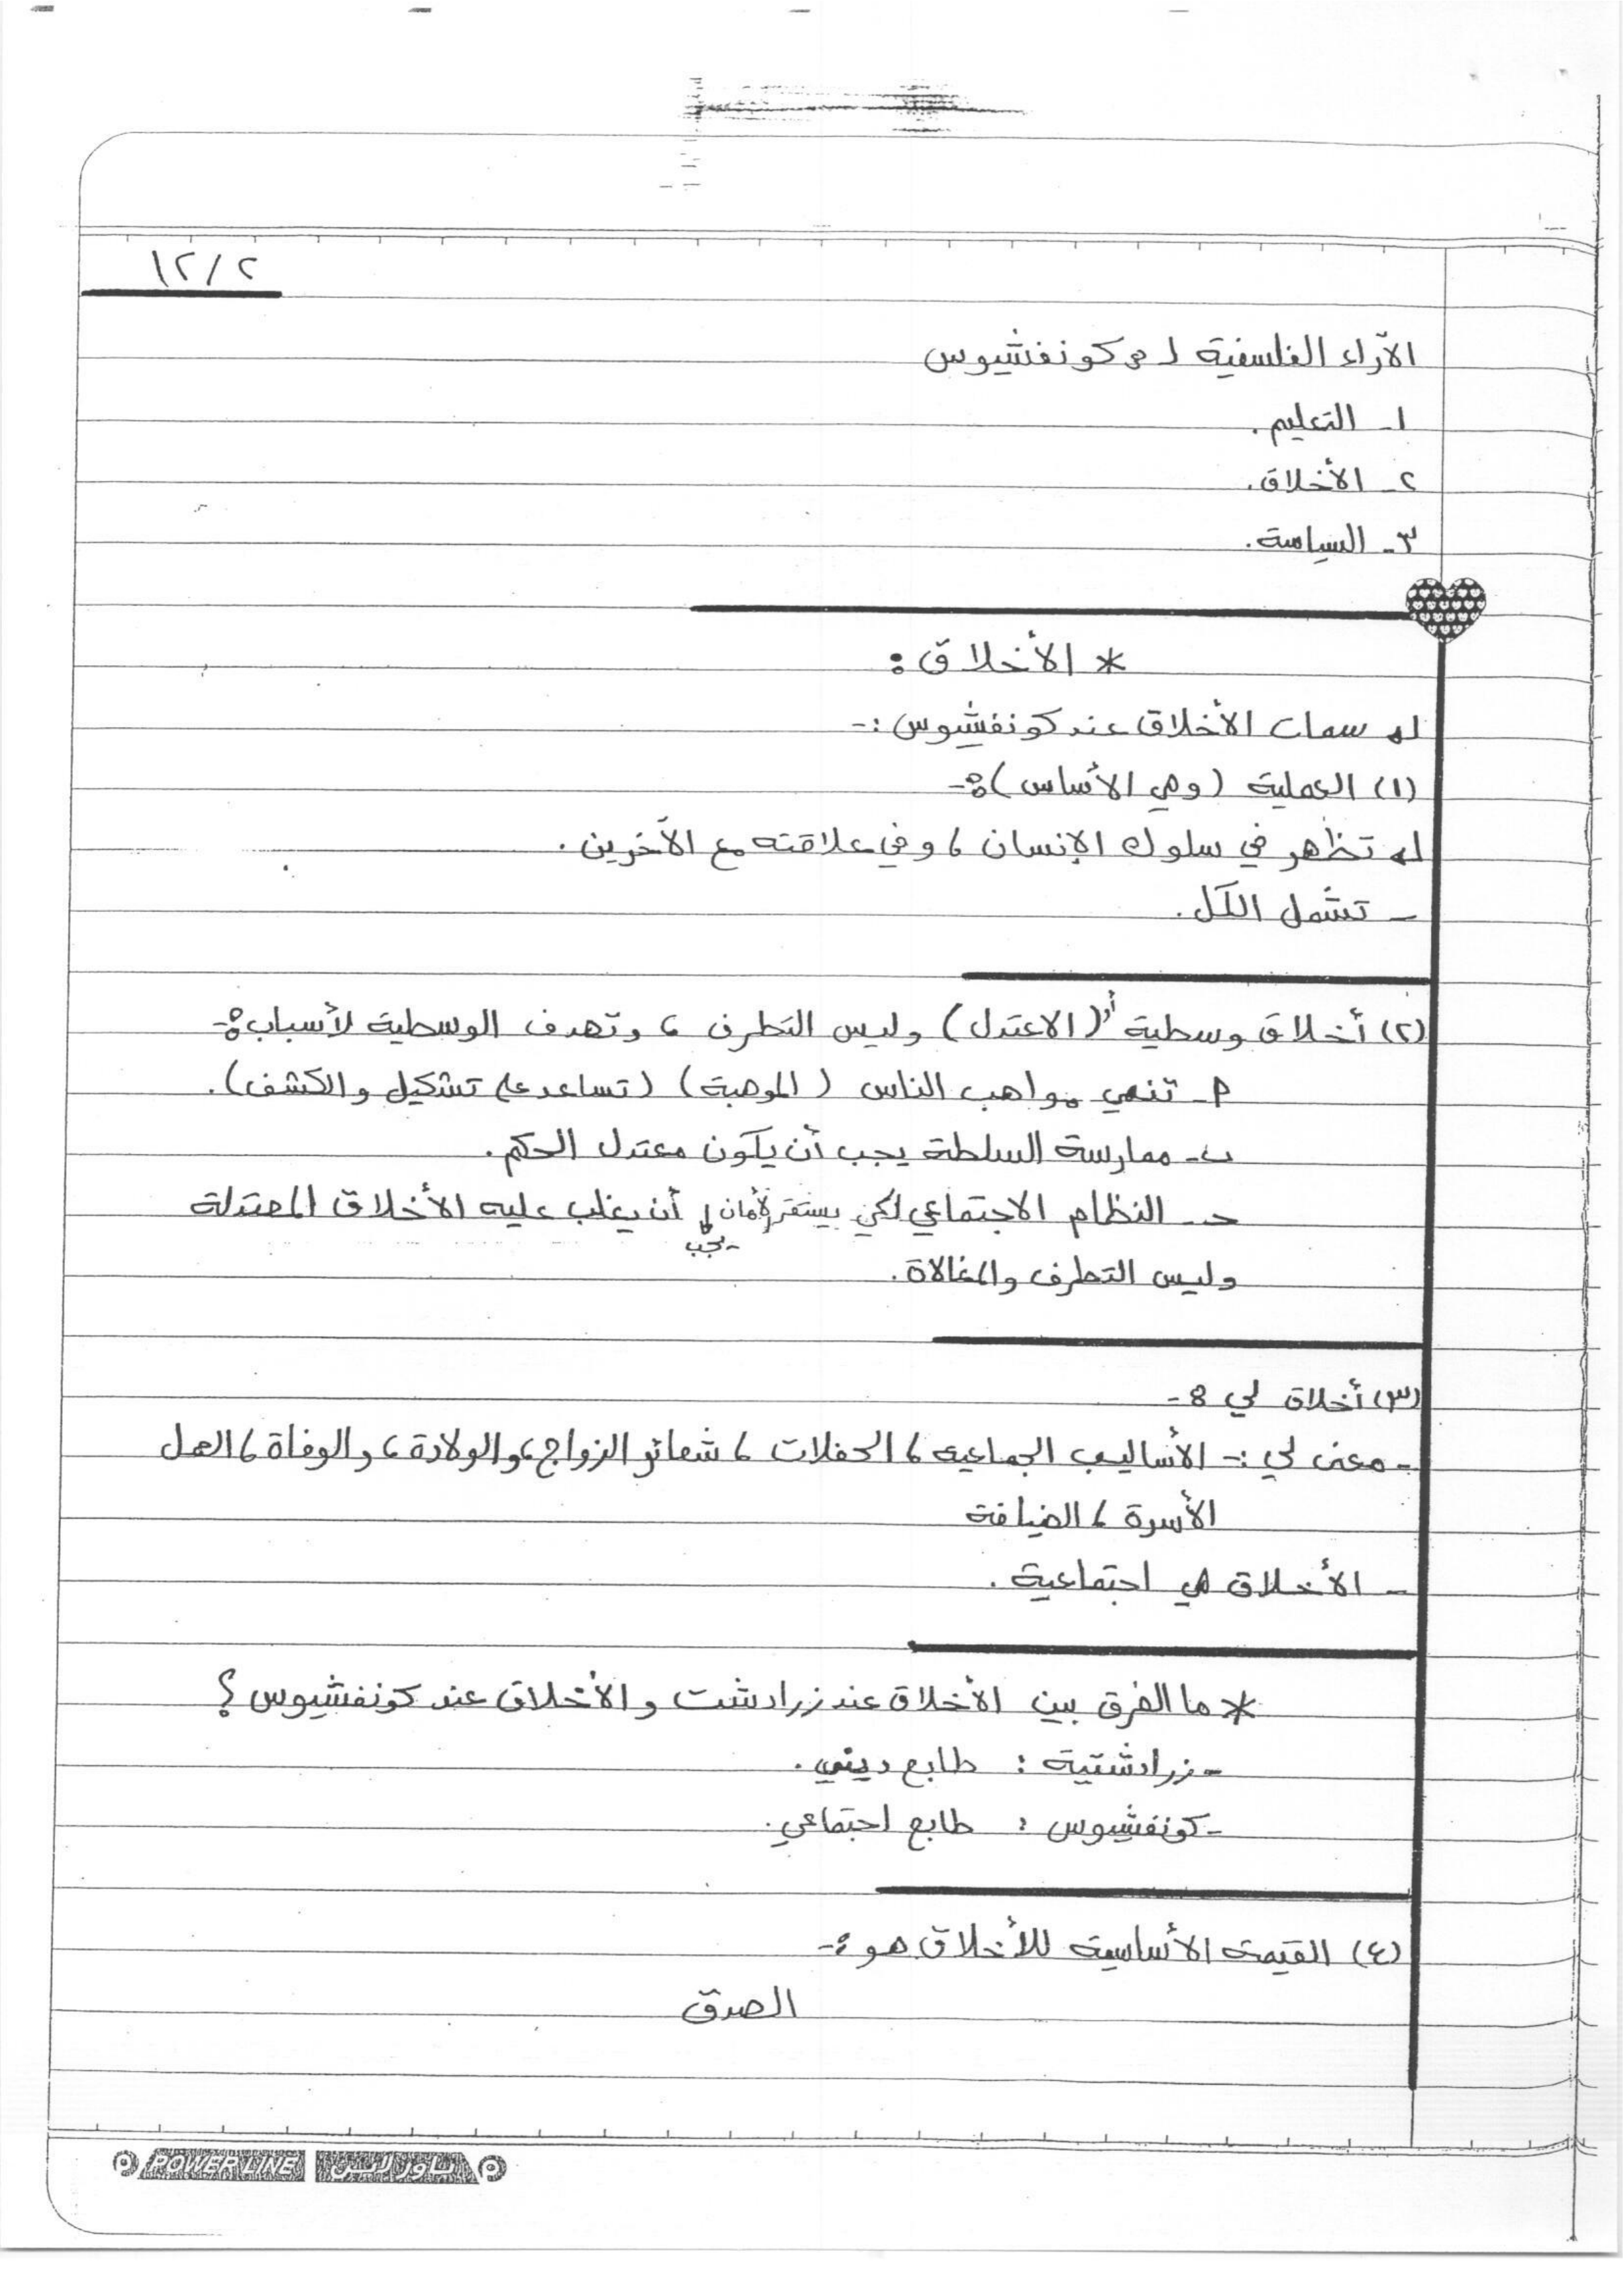 ١٢/٢
الآراء الفلسفية لـ كونفشيوس
١- التعليم.
٢- الأخلاق.
٣- السياسة.
* الأخلاق:
سمات الأخلاق عند كونفشيوس:-
(١) العملية (وهي الأساس):-
تظهر في سلوك الإنسان، وفي علاقته مع الآخرين.
- تشمل الكل.
(٢) أخلاق وسطية أو (الاعتدل) وليس التطرف، وتهدف الوسطية لأسباب:-
أ- تنمي مواهب الناس (الموهبة) (تساعد على تشكيل والكشف).
ب- ممارسة السلطة يجب أن يكون معتدل الحكم.
حـ- النظام الاجتماعي لكي يستقر الأمان يجب أن يغلب عليه الأخلاق المعتدلة
وليس التطرف والمغالاة.
(٣) أخلاق لي :-
- معنى لي :- الأساليب الجماعية، الحفلات، شعائر الزواج، والولادة، والوفاة، العمل
الأسرة، الضيافة
- الأخلاق هي اجتماعية.
* ما الفرق بين الأخلاق عند زرادشت والأخلاق عند كونفشيوس؟
- زرادشتية: طابع ديني.
- كونفشيوس: طابع اجتماعي.
(٤) القيمة الأساسية للأخلاق هو :-
الصدق
POWER LINE باور لاين